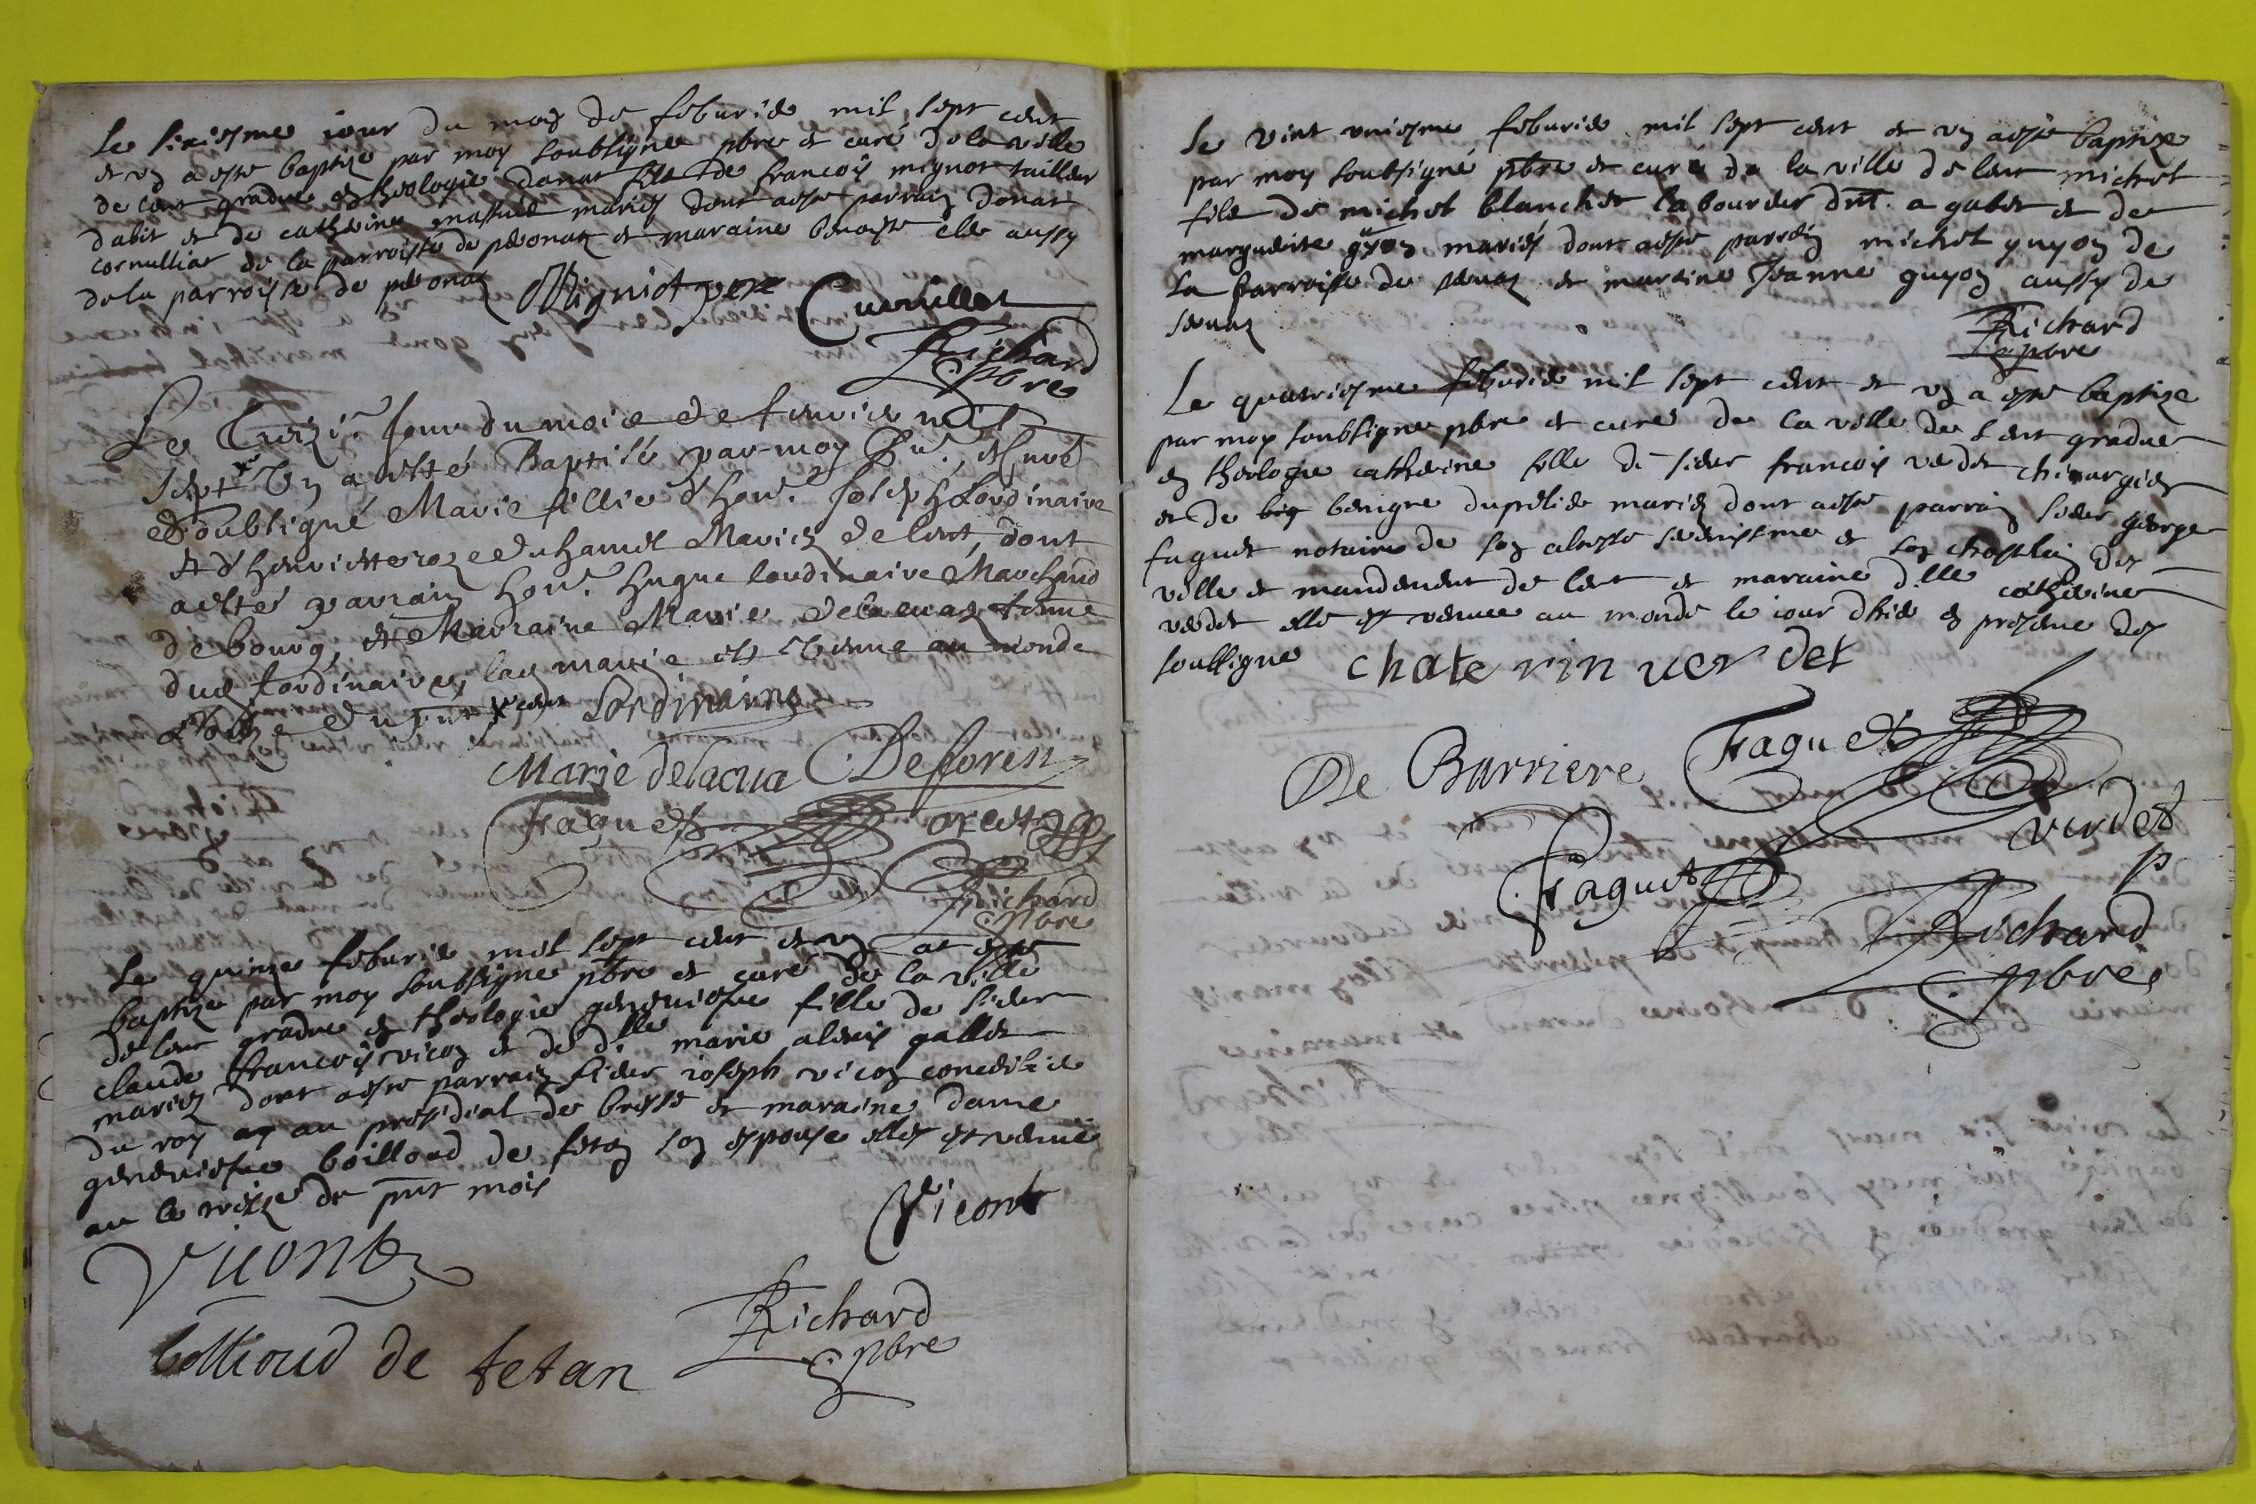 Le sixiesme iour du mois de feburier mil sept cent
et vn a este baptize par moy soubsigne pbre et curé de la ville
de cent gradue en theologie donat fils de francois mignot tailleur
dabit et de catherine mariez dont aeste parrain donat
cornulliat de la parroisse de peronaz et maraine benoiste elle aussy
de la parroisse de peronaz Migniot pere Cuerullet
Richard
pbre
Le Jour du mois de feuvier mil
Sept Cent Vn a esté Baptisé par moy Curé
Soubsigné Marie fillie d'hon. Joseph Lordinaire
et d'henriette roze duhamel Mariez de cent, dont
a esté parrain hon. hugue lordinaire Marchand
de bourg, et Marraine Marie delacuaz femme
dud. lordinaire, lad. marie est venue au monde
Lordinaire
Marie delacua Deflorin
Faguet
Richard
pbre
Le quinze feburier mil sept cent et vn at este
baptize par moy soubsigne pbre et curé de la ville
de cent gradue en theologie geneviesue fille de sieur
claude francois vicon et de dlle marie alexis gallet
mariez dont aeste parrain sieur ioseph vicon conceillier
du roy au presidial de bresse et maraine dame
geneviesue boilloud de fetan son espouse elles est venue
au le treize du pnt mois
Vicont
Viconte
bollioud de fetan Richard
pbre
Le vint vniesme feburier mil sept cent et vn aeste baptize
par moy soubsigné pbre et curé de la ville de cent michel
fils de michel blanchet laboureur dnt. a gabet et de
marguerite guyon mariés dont aeste parrein michel guyon de
la parroisse de seruaz et maraine Jeanne guyon aussy de
seruaz
Richard
pbre
Le quatriesme feburier mil sept cent et vn a este baptize
par moy soubsigne pbre et curé de la ville de cent gradue
en theologie catherine fille de sieur francois verdet chirurgien
et de benigne dupelier mariez dont aeste parrain sieur george
faguet notaire de son altesse serenissime et son chastelain des
ville et mandement de cent et maraine dlle catherine
verdet elle est venue au monde le iour dhier en presence des
soubsigne chaterin uer det
De Barriere Faguet
verdet
Faguet p
Richard
pbre